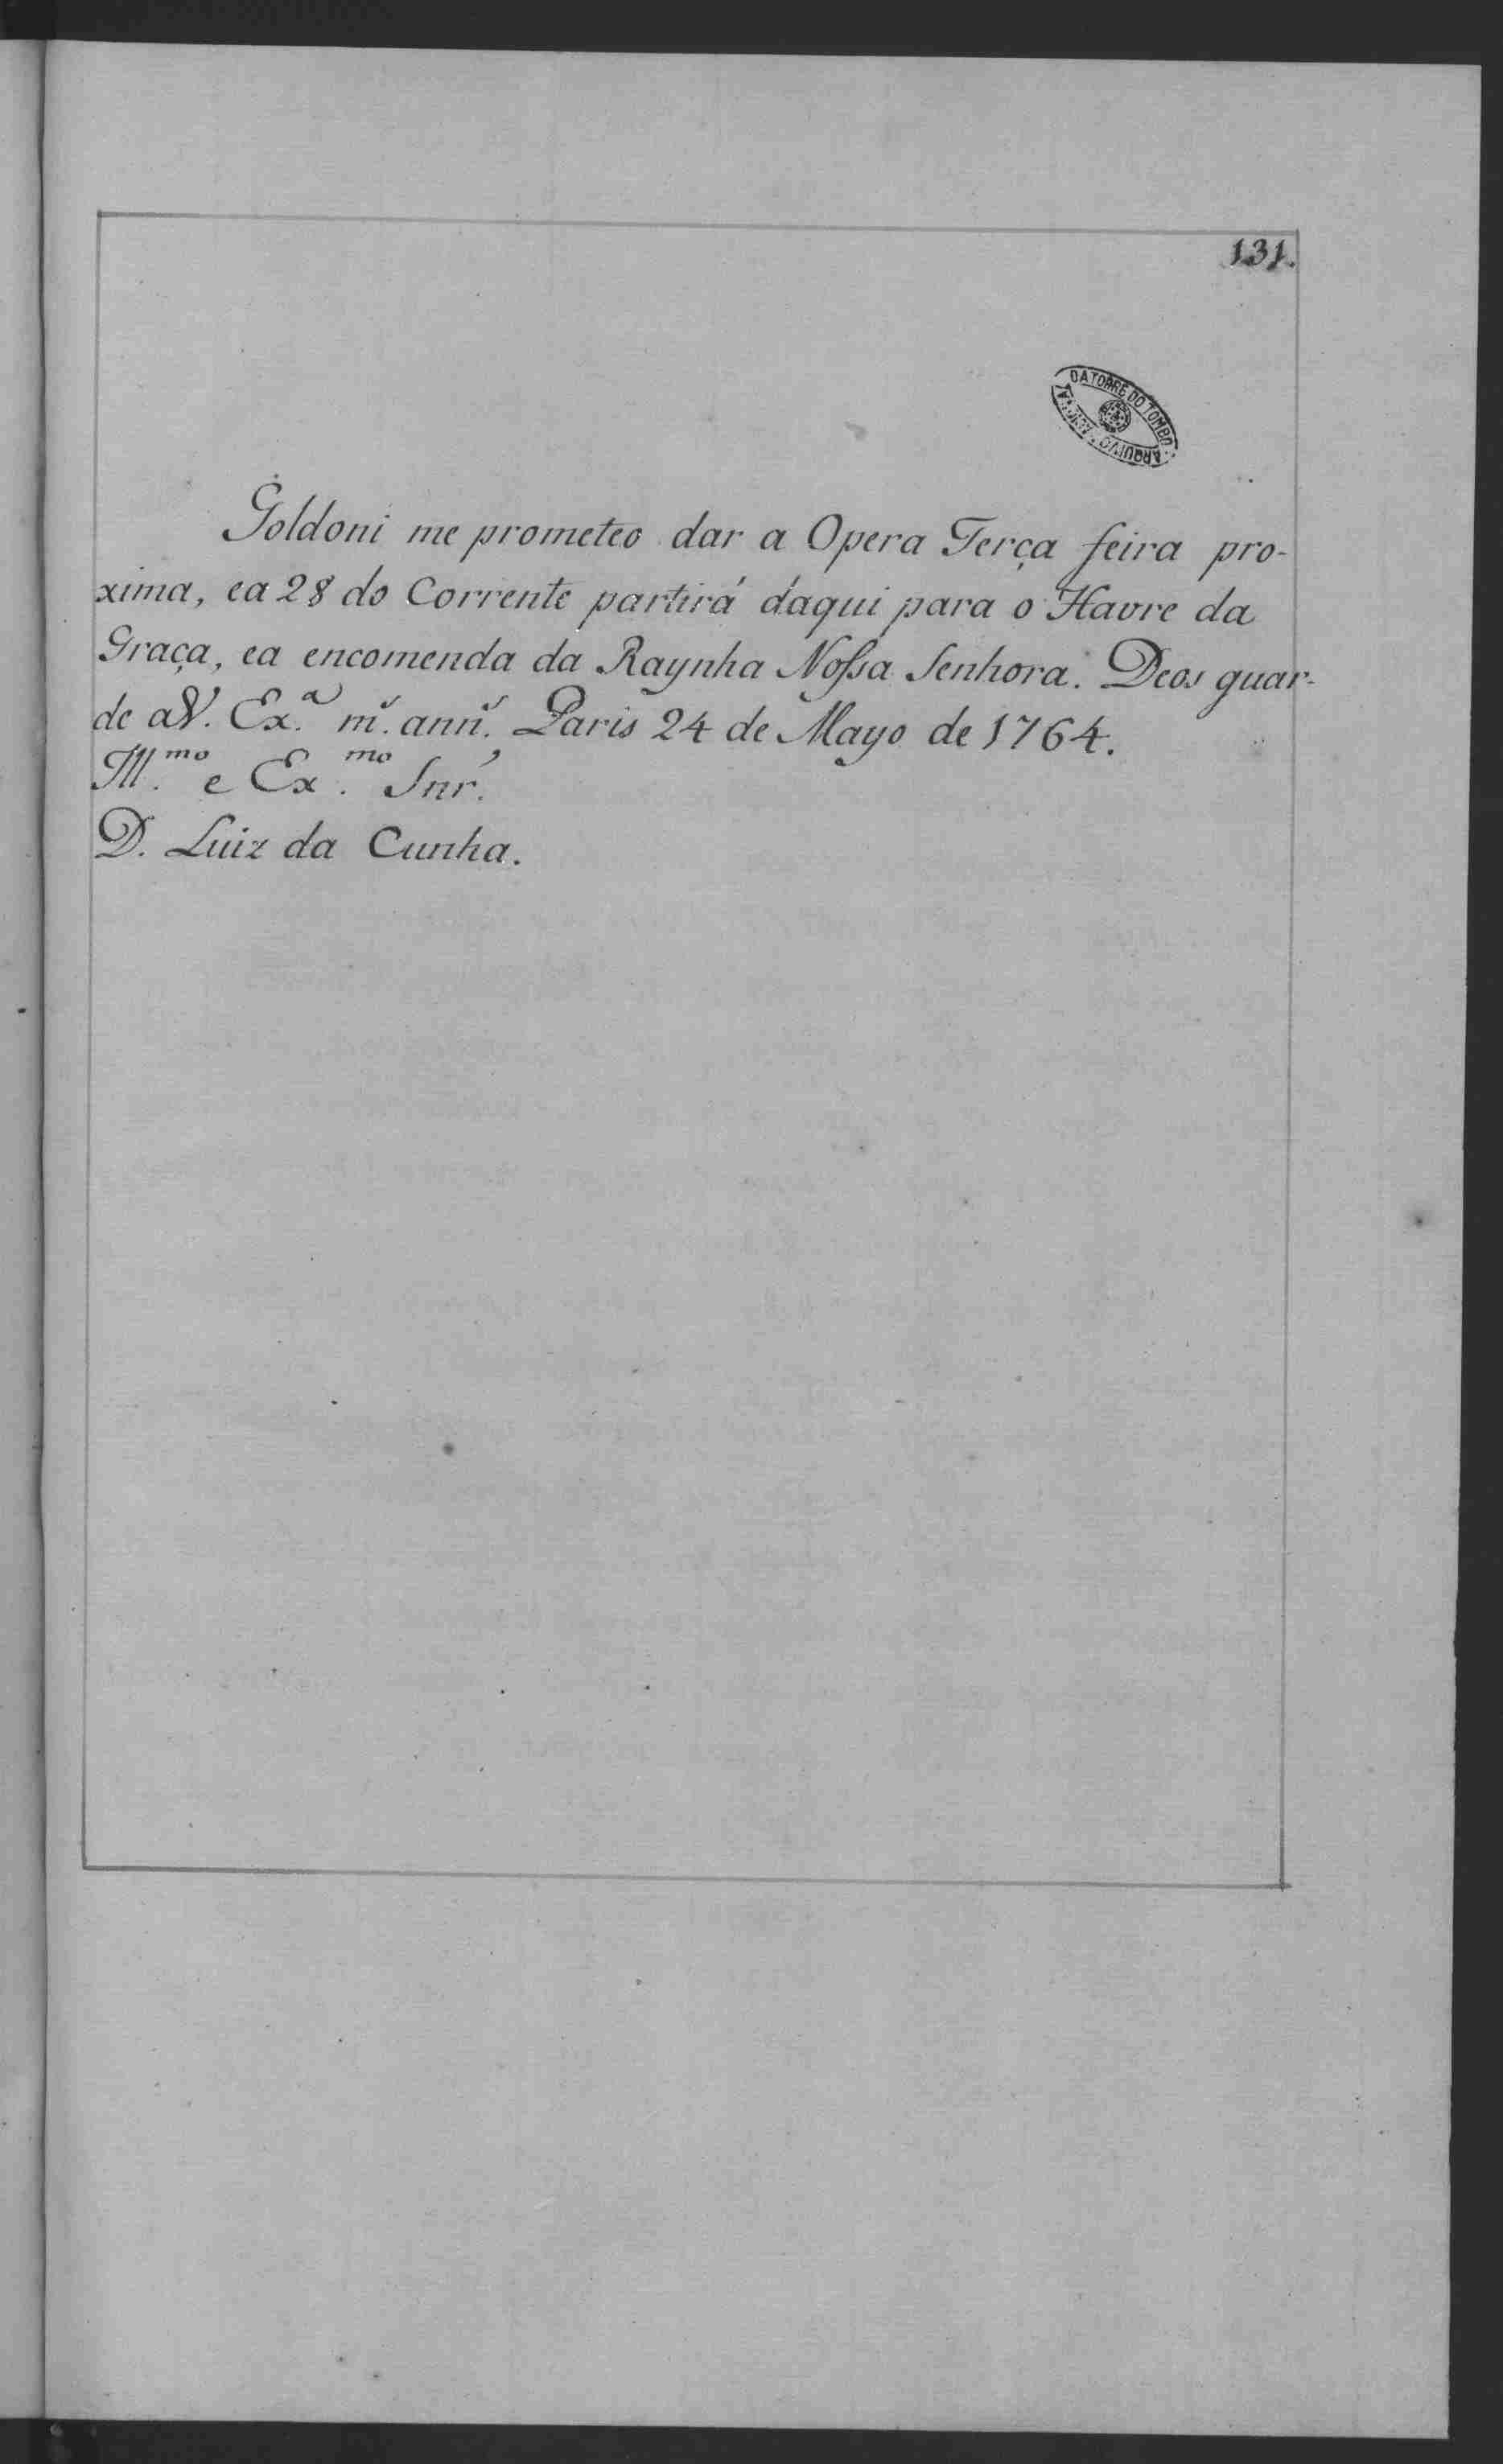 131.
DA TORRE DO TOMBO
ARQUIVO
Goldoni me prometeo dar a Opera Terça feira pro-
xima, ea 28 do Corrente partirá d'aqui para o Havre da
Graça, ea encomenda da Raynha Nossa Senhora. Deos guar-
de aV. Ex.ª m.ˢ ann.ˢ Paris 24 de Mayo de 1764.
Ill.ᵐᵒ e Ex.ᵐᵒ Snr.
D. Luiz da Cunha.